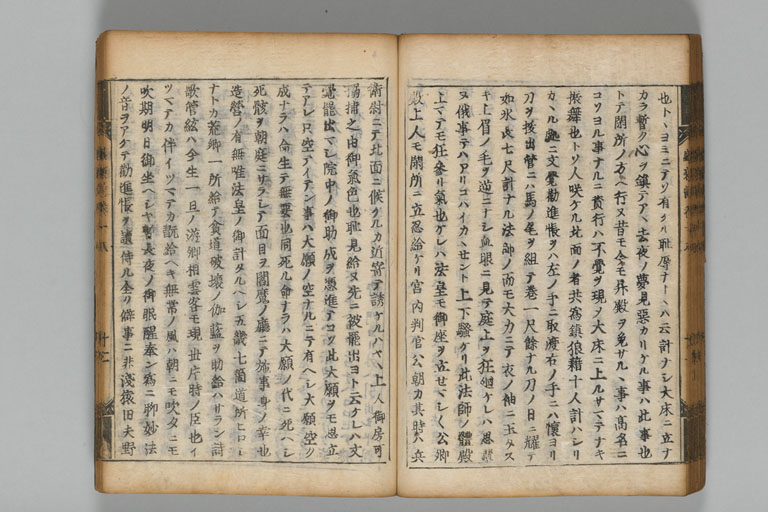 也トヽヨミニアソ有ケリ耻辱ナ丨ヽハ云計ナシ大床ニ立ナ
カラ暫ク心ヲ鎮テアヽ去夜ノ夢見惡カリケル事ハ此事也
トテ閑所ノ方ヘ行ヌ昔モ今モ昇殿ヲ免サルヽ事ハ高名ニ
コソヨル事ナルニ資行ハ不覺ヲ現メ大床ニ上ルサマテナキ
振舞也トソ人咲ケル此面ノ者共為鎮狼藉十人計ハシリ
カヽル處ニ文覺勧進帳ヲハ左ノ手ニ取渡右ノ手ニハ懐ヨリ
刀ヲ拔出管ニハ馬ノ尾ヲ組テ巻一尺餘ナル刀ノ日ニ耀テ
如氷氏七尺計ナル法師ノ而モ大力ニテ衣ノ袖ニ玉タス
キ上眉ノ毛ヲ逆ニナシ血眼ニ見テ庭上ヲ狂廻ケレハ思
ヌ俄事テハアリコハイカヽセント上下騒ケリ此法師ノ體殿
上マテモ狂參リ氣也ケレハ法皇モ御座ヲ立セマシ〱公卿
殿上人モ閑所ニ立忍給ケリ宮内判官公朝カ其時ハ兵
衛尉ニテ北面ニ候ケルカ近寄テ誘ケルハヤヽ上人御房可
搦捕之由御氣色也耻見給ヌ先ニ被罷出ヨト云ケレハ文
覺罷出マシ院中ノ御助成ヲ憑進テコソ此大願ヲモ思立
テアレ只空アイテン事ハ大願ノ空ナルニテ有ヘシ大願空ク
成ナラハ命生テ無要也同死ル命ナラハ大願ノ代ニ死ヘシ
死骸ヲ朝庭ニサラシテ面目ヲ閻魔ノ廳ニテ施事身ノ幸也
造營ノ有無唯法皇ノ御計タルヘシ五畿七箇道所ヒロシ
ナトカ庄郷一所給テ貧道破壊ノ伽藍ヲ助給ハサラン詩
歌管絃ハ今生一旦ノ遊卿相雲客モ現世片時ノ臣也イ
ツマテカ伴イツマテカ翫給ヘキ無常ノ風ハ朝ニモ吹夕ニモ
吹期明日御坐ヘシヤ暫長夜ノ御眠醒奉ン為ニ聊妙法
ノ音ヲアケテ勧進帳ヲ讀侍ル全ク僻事ニ非淺猿旧夫野